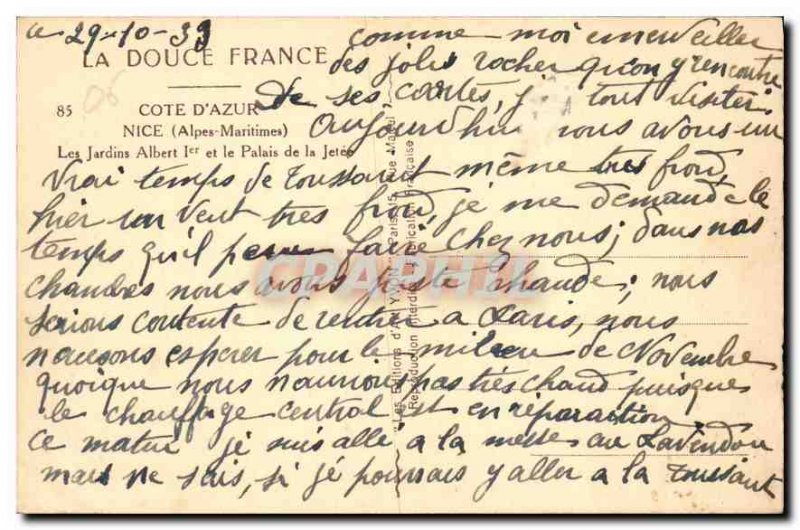 le 29-10-33
LA DOUCE FRANCE
85
06
COTE D'AZUR
NICE (Alpes-Maritimes)
Les Jardins Albert Ier et le Palais de la Jetée
comme moi emerveiller
des jolis rocher qu'on y rencontre
de ses cartes, j' tout visiter.
Aujourd'hui nous avons un
vrai temps de Toussaint même très froid,
hier un vent tres froid, je me demande le
temps qu'il faire chez nous; dans nos
chambres nous avons juste chaude; nous
serions contente de rentré a Paris, nous
esperer pour le milieu de Novembre
quoique nous n'aurions pas très chaud puisque
le chauffage central est en réparaction
ce matin je suis allé a la messe au Lavendou
mais ne sais, si je pourrais y aller a la Toussaint
"Les Editions d'Art YVON" - Paris, 15, Rue Martel
Reproduction interdite - Fabrication Française
CPAPHIL